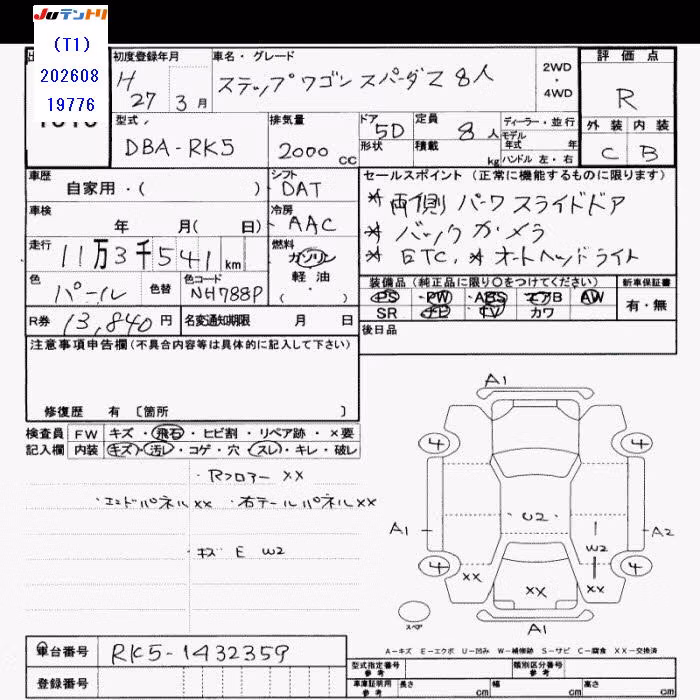 JUテントリ
(T1)
202608
19776
初度登録年月
H
27 3月
車名・グレード
ステップワゴン スパーダZ 8人
2WD
・
4WD
評価点
R
外装 内装
C B
型式
DBA-RK5
排気量
2000 CC
ドア
5D
形状
定員
8人
積載
kg
ディーラー・並行
モデル
年式 年
ハンドル 左・右
車歴
自家用・( )
シフト
DAT
セールスポイント(正常に機能するものに限ります)
* 両側 パワスライドドア
* バックカメラ
* ETC, * オートヘッドライト
車検
年 月( 日)
冷房
AAC
走行
11万3千541km
燃料
ガソリン
軽・油
( ・ )
色
パール
色替
色コード
NH788P
装備品(純正品に限り○をつけてください)
PS PW ABS エアB AW
SR ナビ TV カワ
新車保証書
有・無
R券 13,840円
名変通知期限 月 日
後日品
注意事項申告欄(不具合内容等は具体的に記入して下さい)
修復歴 有 〔箇所 〕
検査員 FW キズ・飛石・ヒビ割・リペア跡・×要
記入欄 内装 キズ・汚レ・コゲ・穴・スレ・キレ・破レ
・Rフロアー XX
・エンドパネルXX ・右テールパネルXX
・キズ E W2
A1
4 4
U2
A1 A2
W2
4 4
XX XX XX
スペア
A1
A-キズ E-エクボ U-凹み W-補修跡 S-サビ C-腐食 XX-交換済
車台番号 RK5-1432359
登録番号
型式指定番号
参考
類別区分番号
参考
車庫証明用
参考
長さ cm 幅 cm 高さ cm